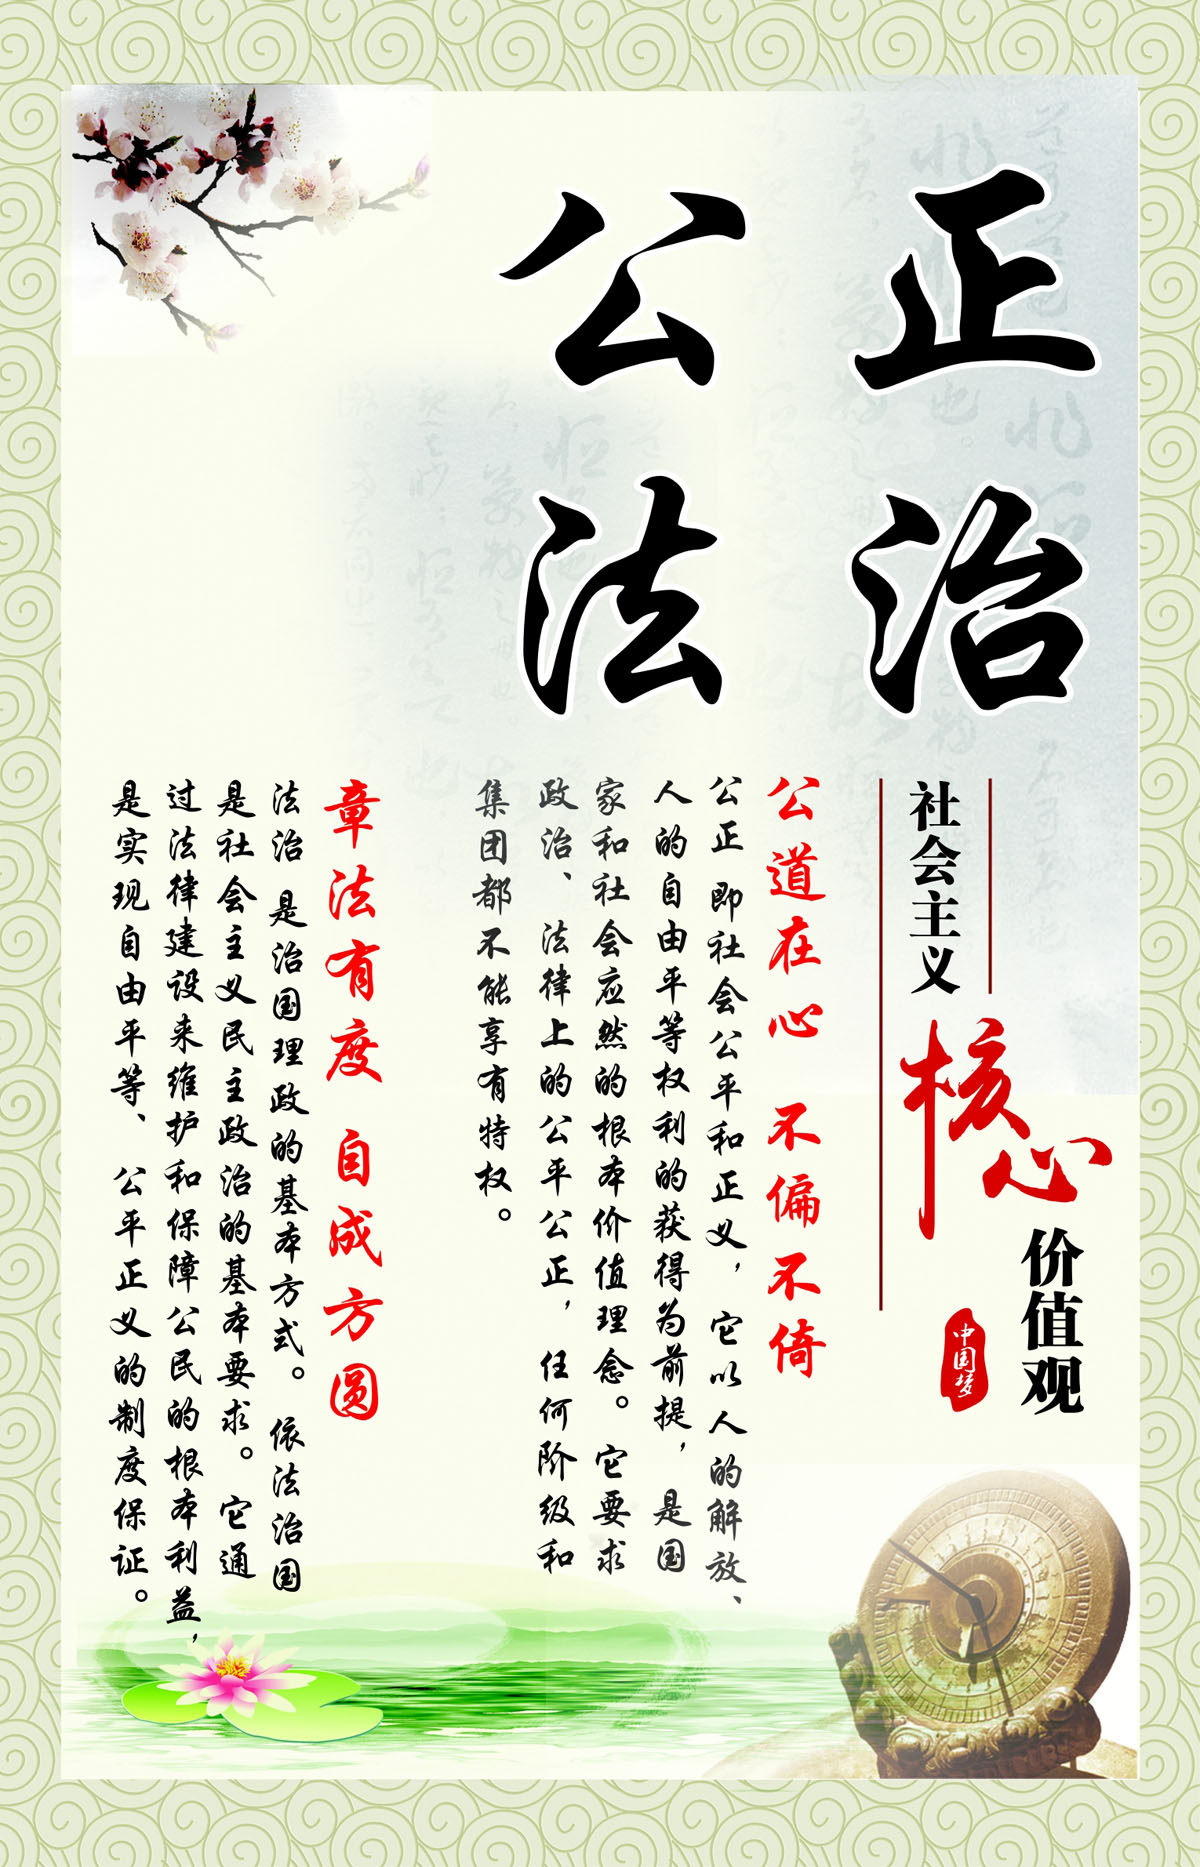 公正
法治
社会主义
核心
价值观
中国梦
公道在心 不偏不倚
公正 即社会公平和正义，它以人的解放、
人的自由平等权利的获得为前提，是国
家和社会应然的根本价值理念。它要求
政治、法律上的公平公正，任何阶级和
集团都不能享有特权。
章法有度 自成方圆
法治 是治国理政的基本方式。依法治国
是社会主义民主政治的基本要求。它通
过法律建设来维护和保障公民的根本利益，
是实现自由平等、公平正义的制度保证。